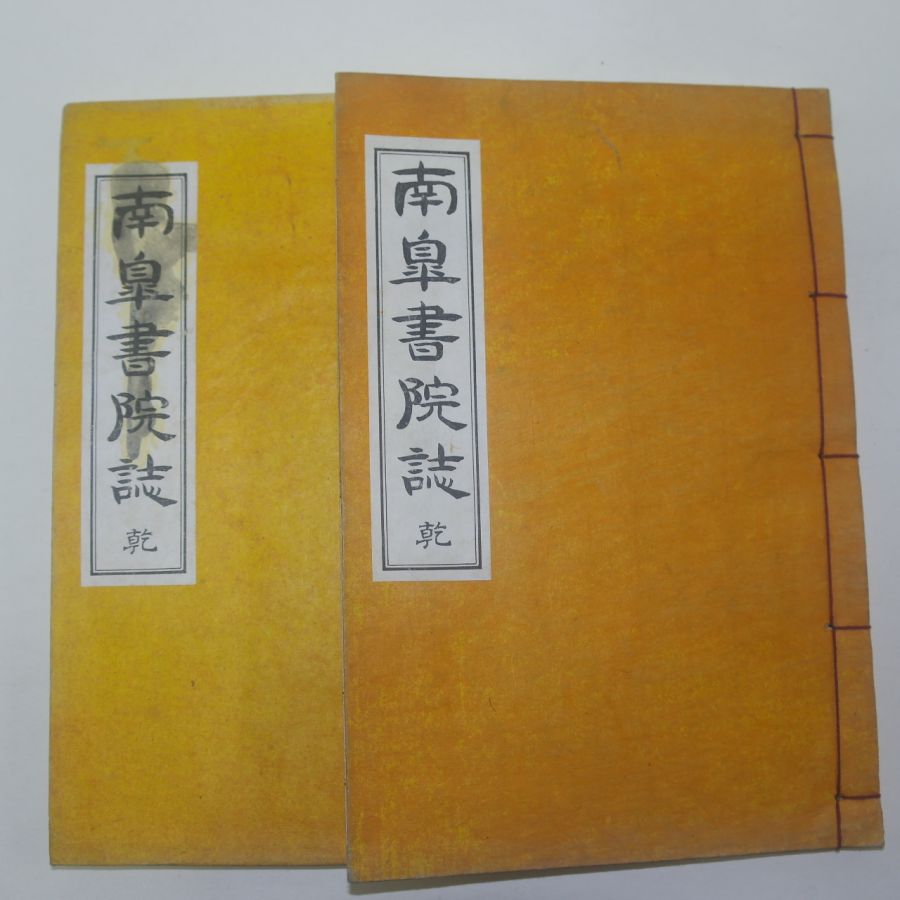 南皐書院誌
乾
南皐書院誌
乾